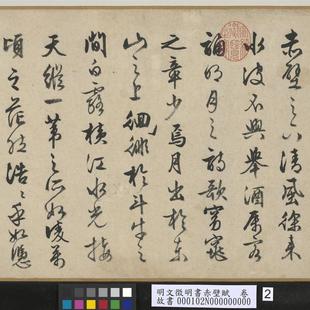 赤壁之下清風徐来
水波不興舉酒屬客
誦明月之詩歌窈窕
之章少焉月出於東
山之上徊徘於斗牛之
間白露橫江水光接
天縱一葦之所如凌萬
頃之茫然浩〻乎如憑
明文徵明書赤壁賦 卷
故書 000102N000000000
2